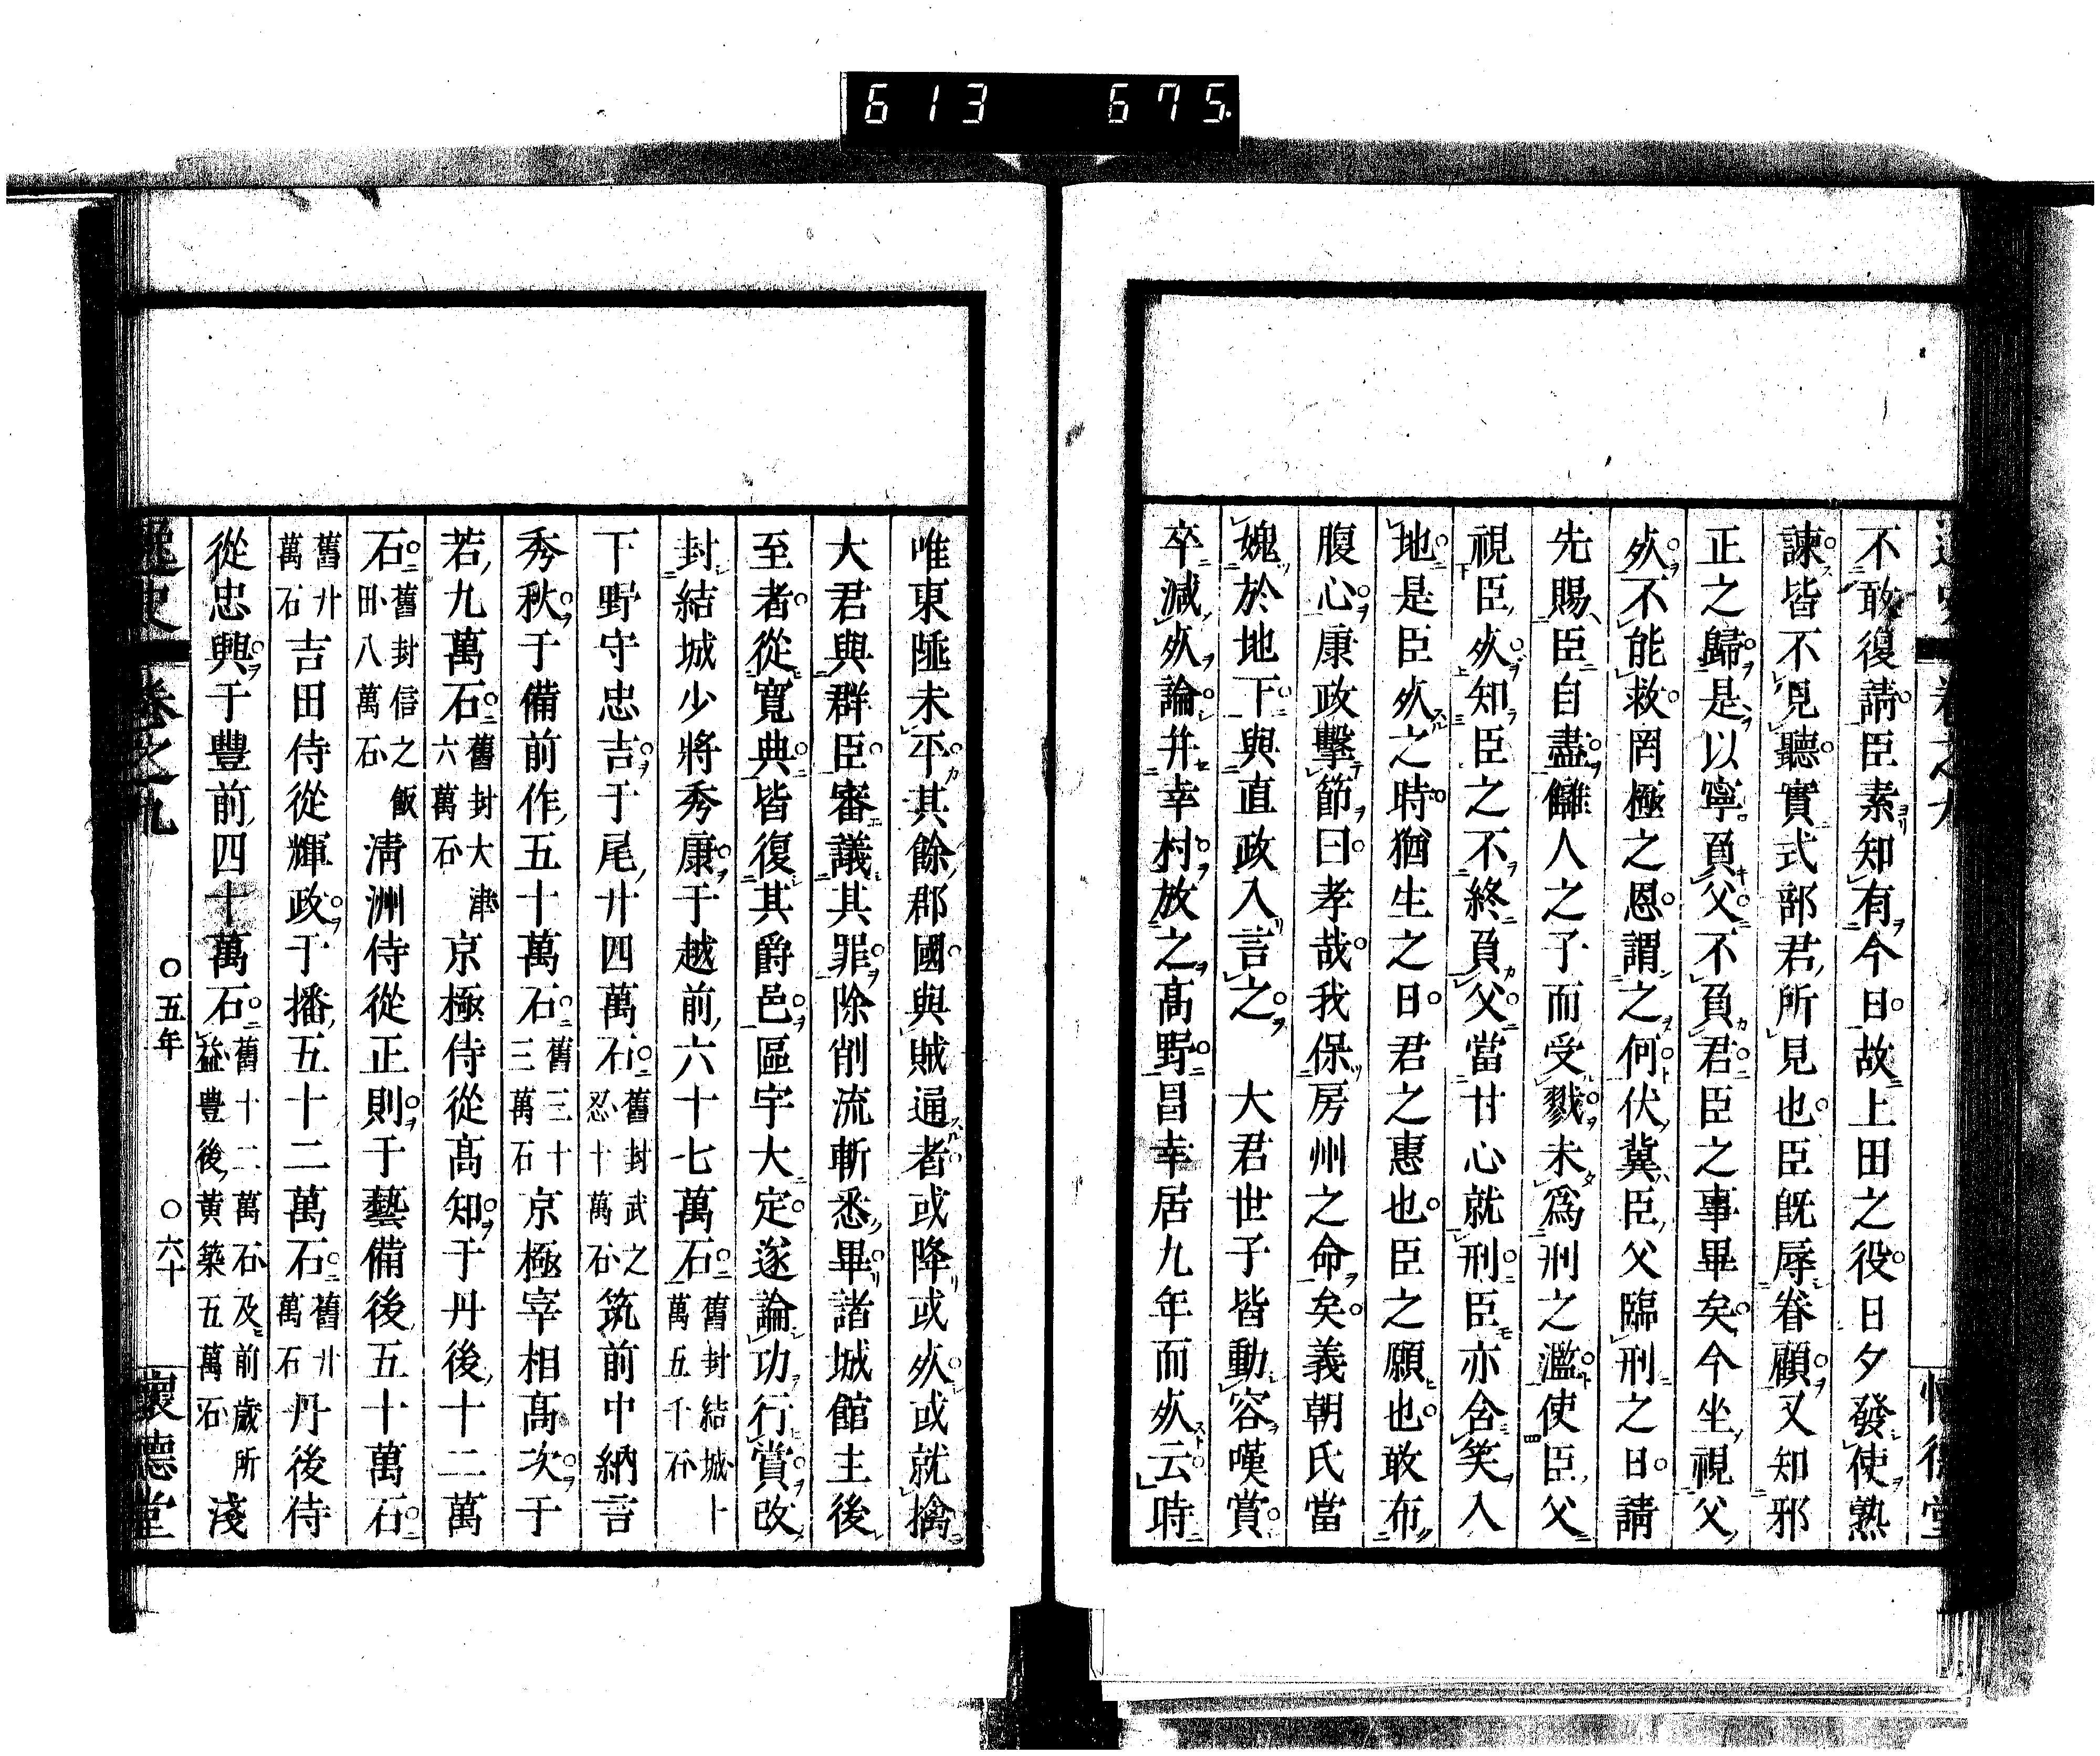 613 675.
不敢復請臣素知有今日故上田之役日夕發使熟
諫皆不見聽實式部君所見也臣既辱眷顧又知邪
正之歸是以寧負父不負君臣之事畢矣今坐視父
㱔不能救罔極之恩謂之何伏冀臣父臨刑之日請
先賜臣自盡讎人之子而受戮未爲刑之濫使臣父
視臣㱔知臣之不終負父當甘心就刑臣亦含笑入
地是臣㱔之時猶生之日君之惠也臣之願也敢布
腹心康政擊節曰孝哉我保房州之命矣義朝氏當
媿於地下與直政入言之 大君世子皆動容嘆賞
卒減㱔論并幸村放之高野昌幸居九年而㱔云時
唯東陲未平其餘郡國與賊通者或降或㱔或就擒
大君與群臣審議其罪除削流斬悉畢諸城館主後
至者從寬典皆復其爵邑區宇大定遂論功行賞改
封結城少將秀康于越前六十七萬石舊封結城十萬五千石
下野守忠吉于尾廿四萬石舊封武之忍十萬石筑前中納言
秀秋于備前作五十萬石舊三十三萬石京極宰相高次于
若九萬石舊封大津六萬石京極侍從高知于丹後十二萬
石舊封信之飯田八萬石清洲侍從正則于藝備後五十萬石
舊廿萬石吉田侍從輝政于播五十二萬石舊廿萬石丹後侍
從忠興于豐前四十萬石舊十二萬石及前歲所益豊後黄築五萬石淺
逸史 卷之九 〇五年 〇六十 懷德堂